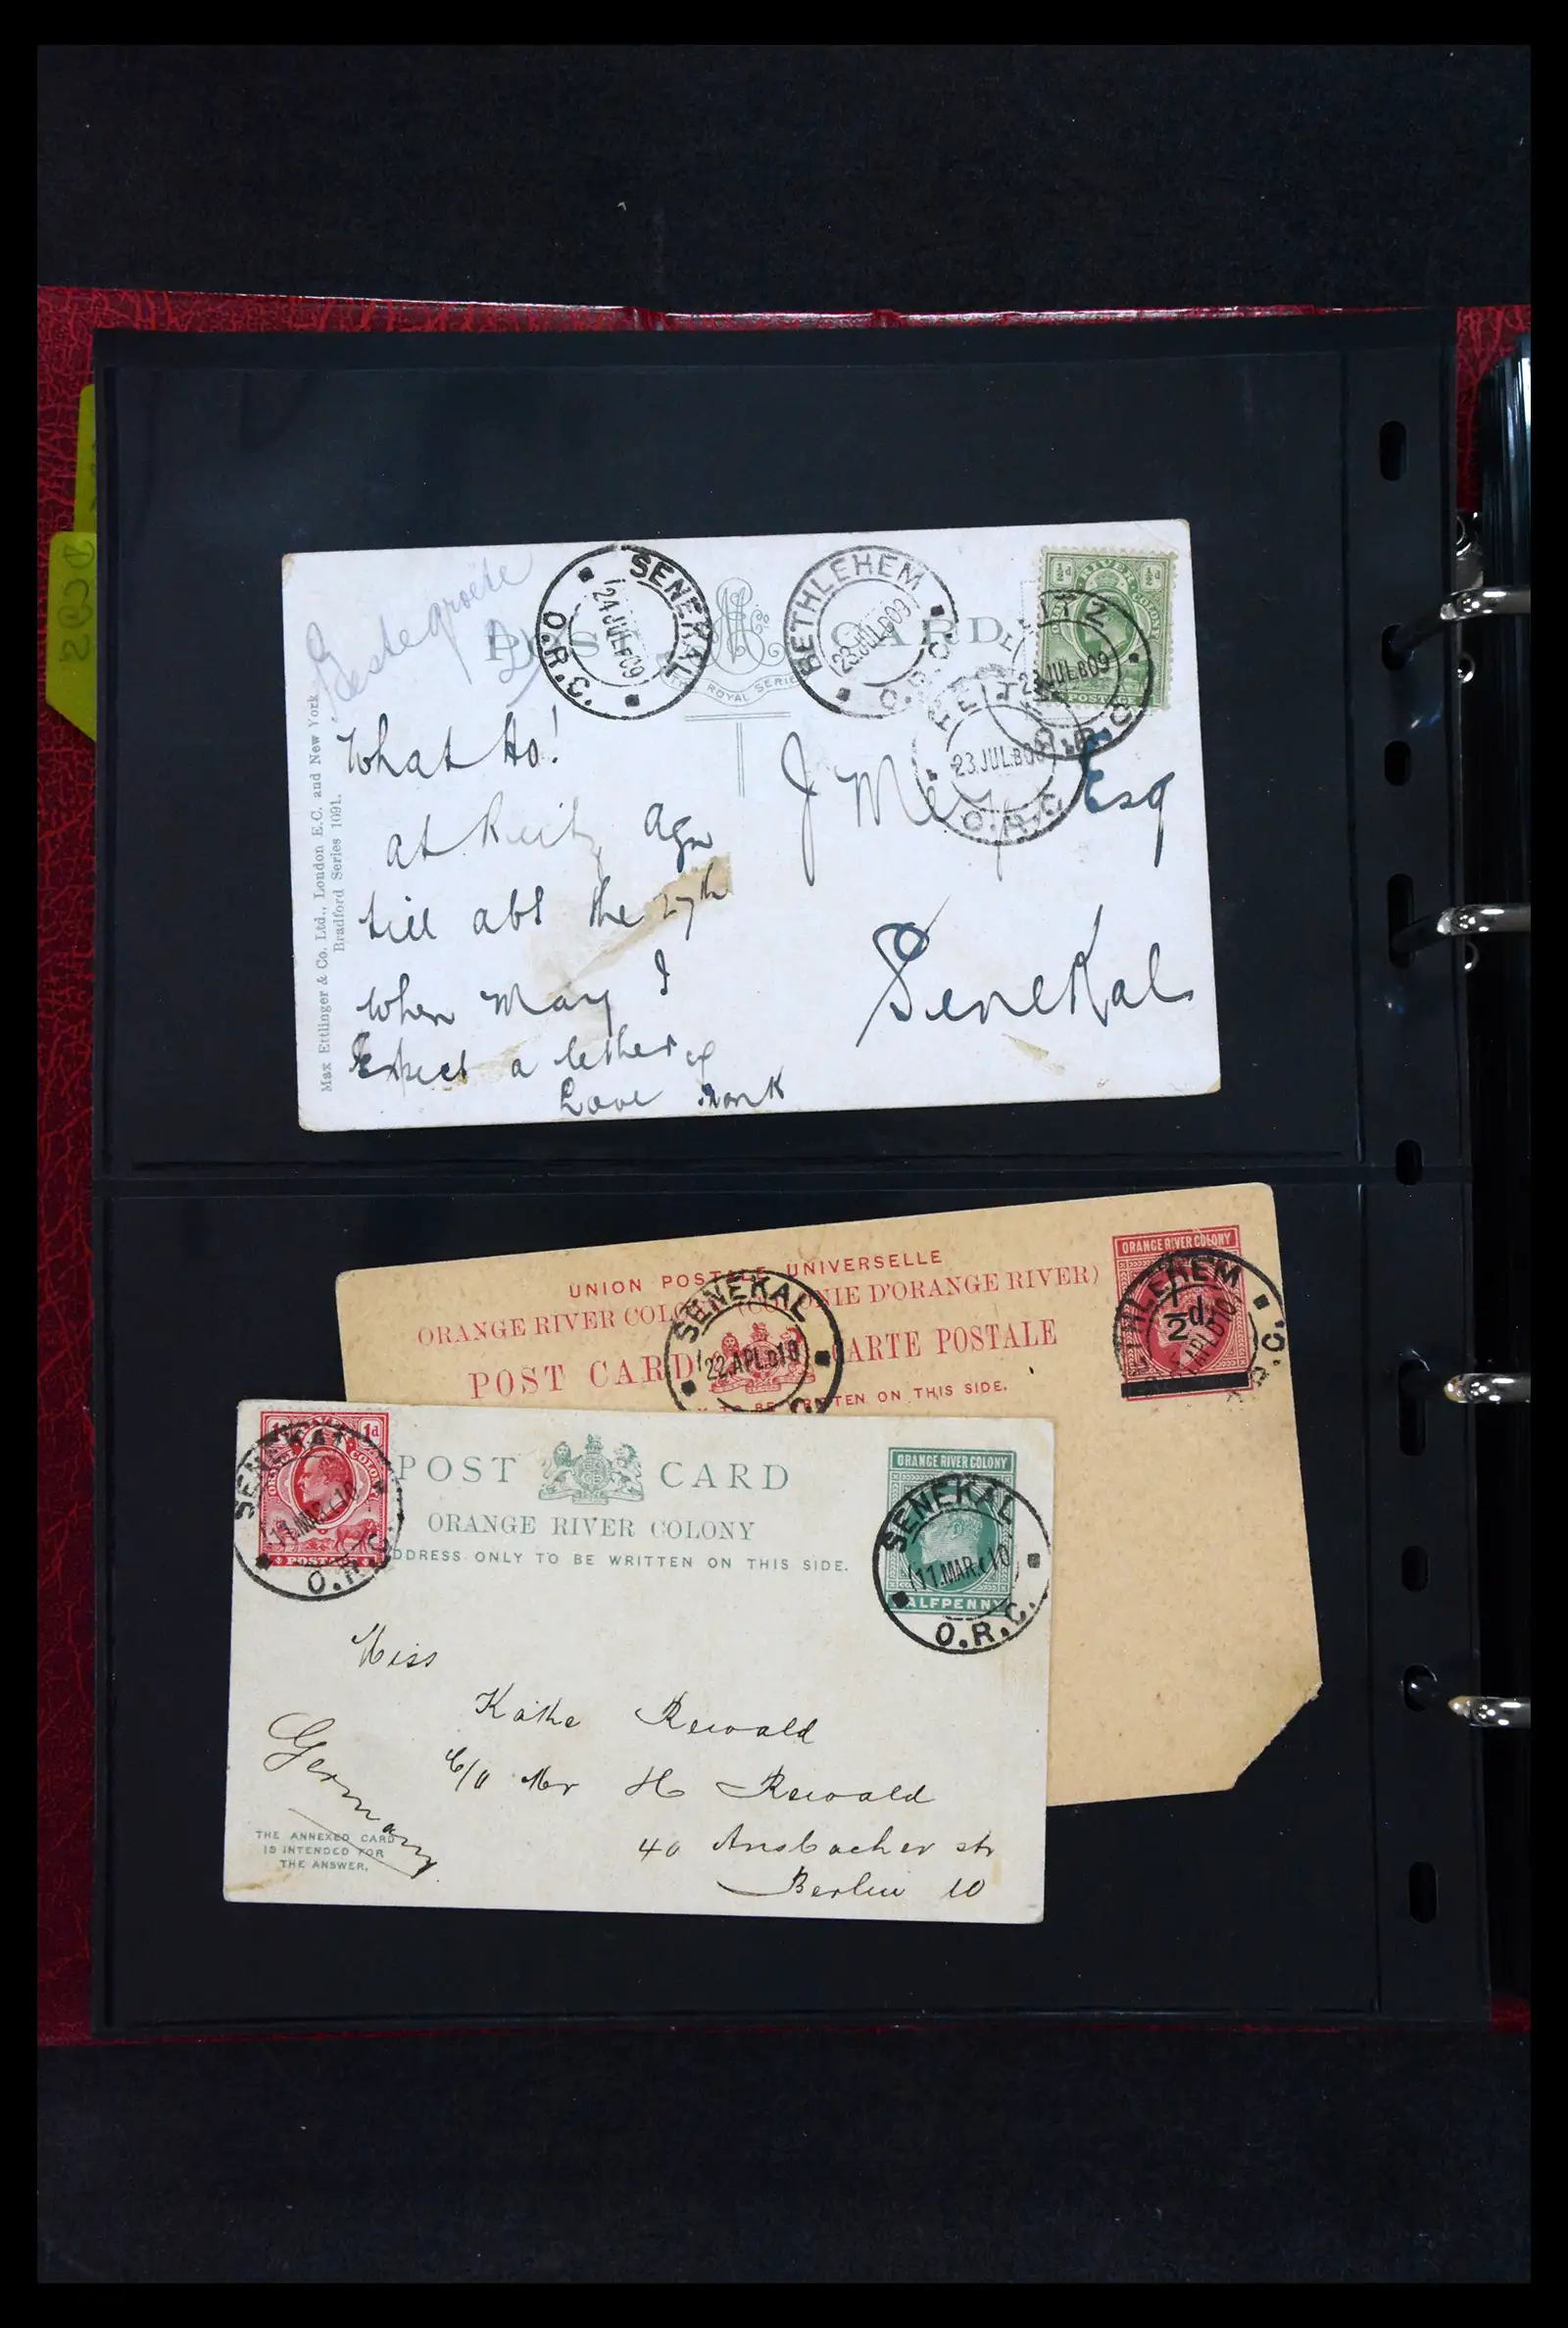 POST CARD
SENEKAL
24 JUL 09
O.R.C.
BETHLEHEM
23 JUL 09
O.R.C.
½d ½d
RIVER
COLONY
POSTAGE
23 JUL.B 09
23 JUL.B 09
O.R.C.
ROYAL SERIES
Max Ettlinger & Co. Ltd., London E.C. and New York
Bradford Series 1091.
What ho!
at Reitz agn
till abt the 27th
when may I
Expect a letter
Love
J Esq
Senekal
UNION POSTALE UNIVERSELLE
ORANGE RIVER COLONY (COLONIE D'ORANGE RIVER)
POST CARD CARTE POSTALE
TO BE WRITTEN ON THIS SIDE.
SENEKAL
22 APL 10
ORANGE RIVER COLONY
½d.
HLEHEM
1d
SENEKAL
17 MAR 10
O.R.C.
POSTAGE
POST CARD
ORANGE RIVER COLONY
DDRESS ONLY TO BE WRITTEN ON THIS SIDE.
ORANGE RIVER COLONY
SENEKAL
17 MAR 10
HALFPENNY
O.R.C.
Miss
Kathe Rewald
c/o Mr H Rewald
40 Ansbacher str
Berlin 10
Germany
THE ANNEXED CARD
IS INTENDED FOR
THE ANSWER.